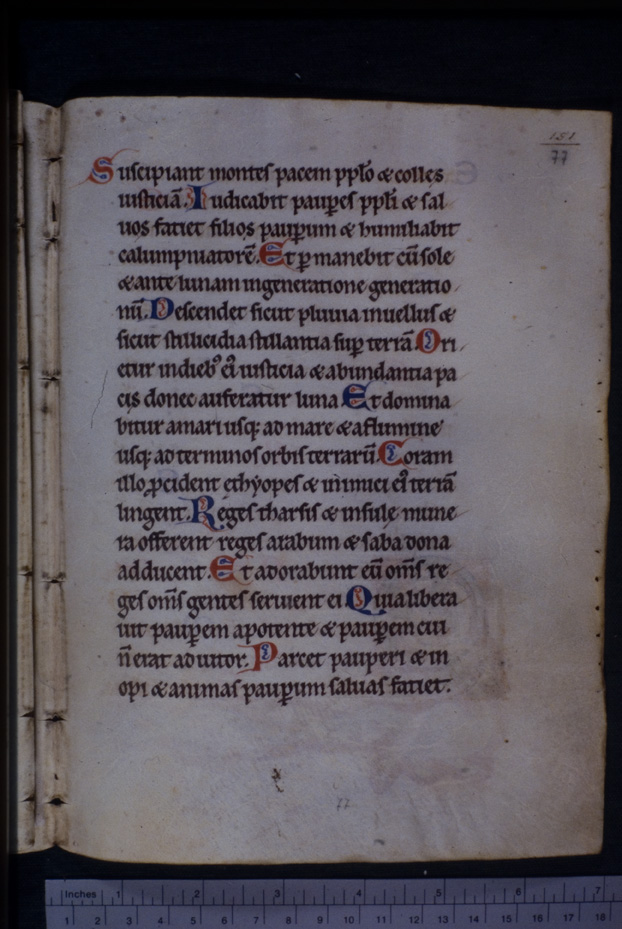 151
77
Suscipiant montes pacem pplo & colles
iusticiā. Iudicabit paupes ppli & sal
uos faciet filios paupum & humiliabit
calumpniatorē. Et p manebit cū sole
& ante lunam ingeneratione generatio
nū. Descendet sicut pluuia inuellus &
sicut stillicidia stillantia sup terrā. Ori
etur indieb' ei' iusticia & abundantia pa
cis donec auferatur luna Et domina
bitur amari usq: ad mare & aflumine
usq: ad terminos orbis terrarū. Coram
illo pcident ethyopes & inimici ei' terrā
lingent. Reges tharsis & insule mune
ra offerent reges arabum & saba dona
adducent. Et adorabunt eū oms re
ges oms gentes seruient ei Quia libera
uit paupem apotente & paupem cui
n̄ erat adiutor. Parcet pauperi & in
opi & animas paupum saluas faciet.
77
Inches 1 2 3 4 5 6 7
1 2 3 4 5 6 7 8 9 10 11 12 13 14 15 16 17 18